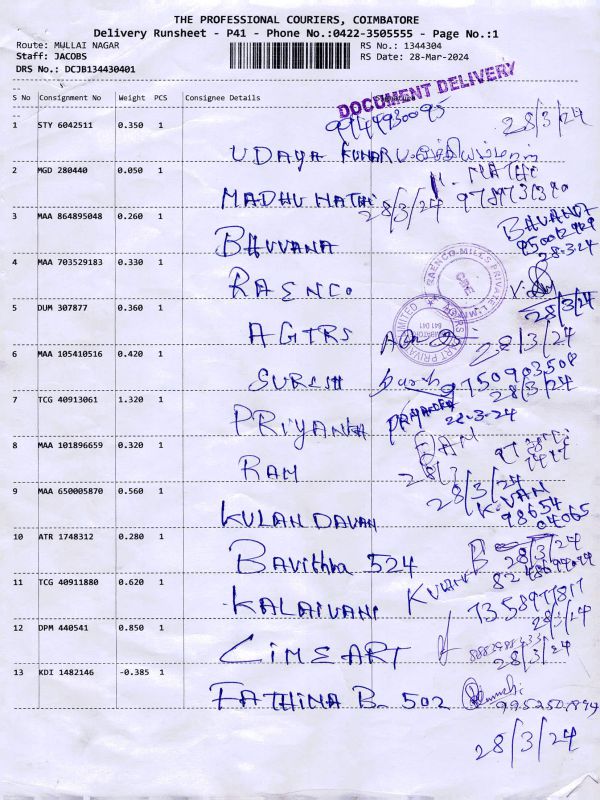 THE PROFESSIONAL COURIERS, COIMBATORE
Delivery Runsheet - P41 - Phone No.:0422-3505555 - Page No.:1
Route: MULLAI NAGAR
RS No.: 1344304
Staff: JACOBS
RS Date: 28-Mar-2024
DRS No.: DCJB134430401
DOCUMENT DELIVERY
S No Consignment No Weight PCS Consignee Details
9944930095
28/3/24
1 STY 6042511 0.350 1
UDAYA KUMAR U
2 MGD 280440 0.050 1
MADHU MATHI 28/3/24
3 MAA 864895048 0.260 1
BHUVANA
BHUVANA
28-3-24
4 MAA 703529183 0.330 1
RAENCO
RAENCO MILLS PRIVATE LIMITED
28/3/24
5 DUM 307877 0.360 1
AGTRS
28/3/24
6 MAA 105410516 0.420 1
SURESH
9750903508
28/3/24
7 TCG 40913061 1.320 1
PRIYANKA
28-3-24
8 MAA 101896659 0.320 1
RAM
28/3/24
9 MAA 650005870 0.560 1
KULAN DAVAN
K.VAN
98654
04065
10 ATR 1748312 0.280 1
Bavithra 524
28/3/24
11 TCG 40911880 0.620 1
KALAIVANI
28/3/24
12 DPM 440541 0.850 1
LIMEART
28/3/24
13 KDI 1482146 -0.385 1
FATHIMA B 502
28/3/24